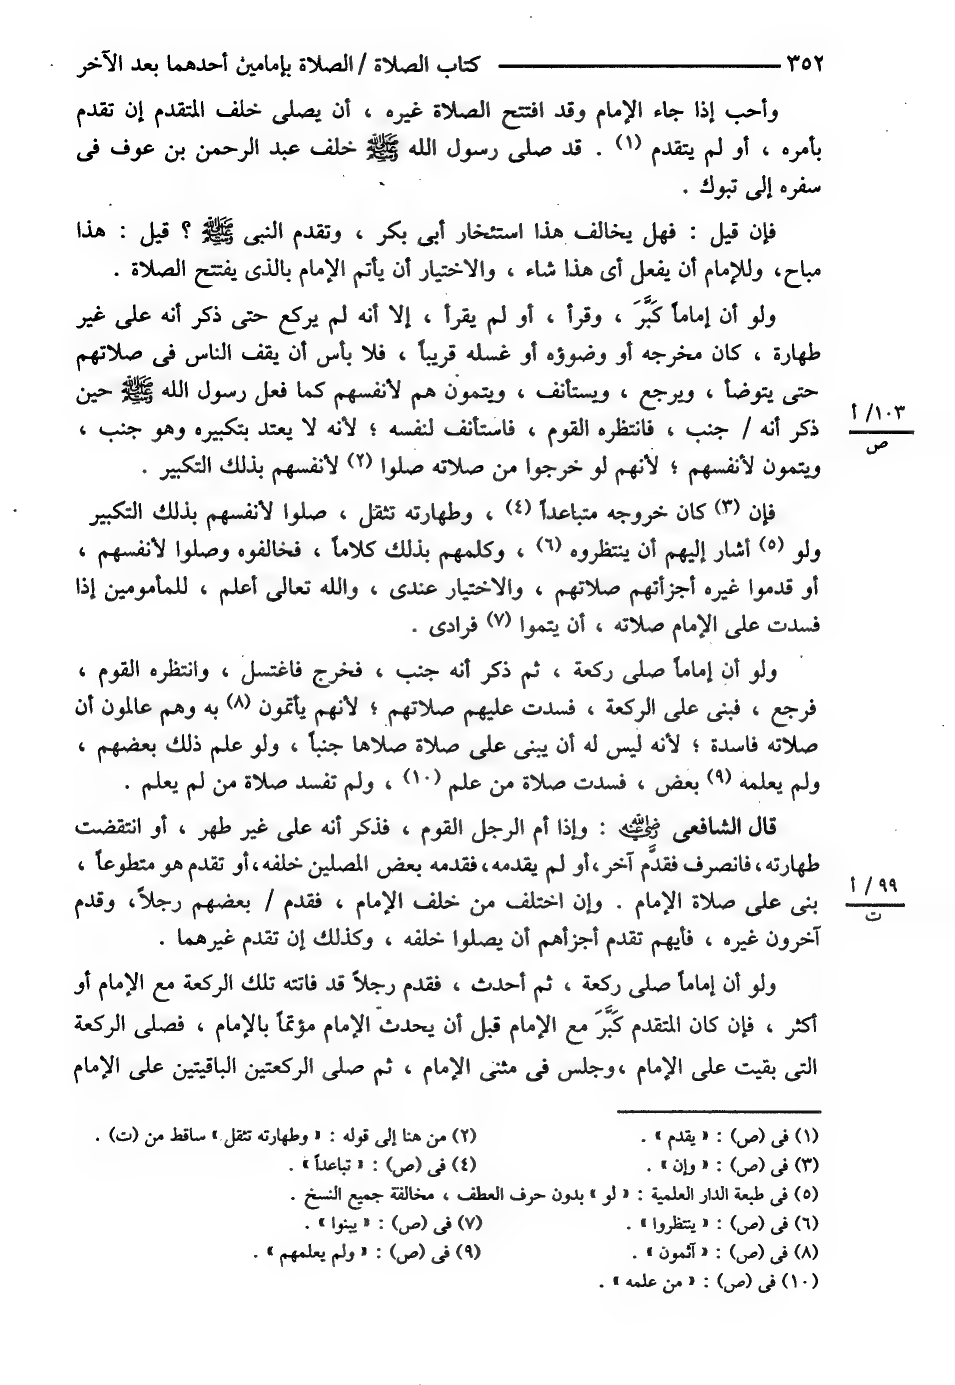 ٣٥٢ ــــــــــــــــــــ كتاب الصلاة / الصلاة بإمامين أحدهما بعد الآخر
وأحب إذا جاء الإمام وقد افتتح الصلاة غيره ، أن يصلى خلف المتقدم إن تقدم
بأمره ، أو لم يتقدم (١) . قد صلى رسول الله ﷺ خلف عبد الرحمن بن عوف فى
سفره إلى تبوك .
فإن قيل : فهل يخالف هذا استئخار أبى بكر ، وتقدم النبى ﷺ ؟ قيل : هذا
مباح، وللإمام أن يفعل أى هذا شاء ، والاختيار أن يأتم الإمام بالذى يفتتح الصلاة .
ولو أن إماماً كَبَّرَ ، وقرأ ، أو لم يقرأ ، إلا أنه لم يركع حتى ذكر أنه على غير
طهارة ، كان مخرجه أو وضوؤه أو غسله قريباً ، فلا بأس أن يقف الناس فى صلاتهم
حتى يتوضأ ، ويرجع ، ويستأنف ، ويتمون هم لأنفسهم كما فعل رسول الله ﷺ حين
ذكر أنه / جنب ، فانتظره القوم ، فاستأنف لنفسه ؛ لأنه لا يعتد بتكبيره وهو جنب ،
١٠٣/ أ
ص
ويتمون لأنفسهم ؛ لأنهم لو خرجوا من صلاته صلوا (٢) لأنفسهم بذلك التكبير .
فإن (٣) كان خروجه متباعداً (٤) ، وطهارته تثقل ، صلوا لأنفسهم بذلك التكبير
ولو (٥) أشار إليهم أن ينتظروه (٦) ، وكلمهم بذلك كلاماً ، فخالفوه وصلوا لأنفسهم ،
أو قدموا غيره أجزأتهم صلاتهم ، والاختيار عندى ، والله تعالى أعلم ، للمأمومين إذا
فسدت على الإمام صلاته ، أن يتموا (٧) فرادى .
ولو أن إماماً صلى ركعة ، ثم ذكر أنه جنب ، فخرج فاغتسل ، وانتظره القوم ،
فرجع ، فبنى على الركعة ، فسدت عليهم صلاتهم ؛ لأنهم يأتمون (٨) به وهم عالمون أن
صلاته فاسدة ؛ لأنه ليس له أن يبنى على صلاة صلاها جنباً ، ولو علم ذلك بعضهم ،
ولم يعلمه (٩) بعض ، فسدت صلاة من علم (١٠) ، ولم تفسد صلاة من لم يعلم .
قال الشافعى رضي الله عنه : وإذا أم الرجل القوم ، فذكر أنه على غير طهر ، أو انتقضت
طهارته، فانصرف فقدَّم آخر ،أو لم يقدمه، فقدمه بعض المصلين خلفه،أو تقدم هو متطوعاً ،
بنى على صلاة الإمام . وإن اختلف من خلف الإمام ، فقدم / بعضهم رجلاً، وقدم
٩٩/ أ
ت
آخرون غيره ، فأيهم تقدم أجزأهم أن يصلوا خلفه ، وكذلك إن تقدم غيرهما .
ولو أن إماماً صلى ركعة ، ثم أحدث ، فقدم رجلاً قد فاتته تلك الركعة مع الإمام أو
أكثر ، فإن كان المتقدم كَبَّرَ مع الإمام قبل أن يحدث الإمام مؤتماً بالإمام ، فصلى الركعة
التى بقيت على الإمام ،وجلس فى مثنى الإمام ، ثم صلى الركعتين الباقيتين على الإمام
(١) فى (ص) : « يقدم » . (٢) من هنا إلى قوله : « وطهارته تثقل » ساقط من (ت) .
(٣) فى (ص) : « وإن » . (٤) فى (ص) : « تباعداً » .
(٥) فى طبعة الدار العلمية : « لو » بدون حرف العطف ، مخالفة جميع النسخ .
(٦) فى (ص) : « ينتظروا » . (٧) فى (ص) : « يبنوا » .
(٨) فى (ص) : « آئمون » . (٩) فى (ص) : « ولم يعلمهم » .
(١٠) فى (ص) : « من علمه » .